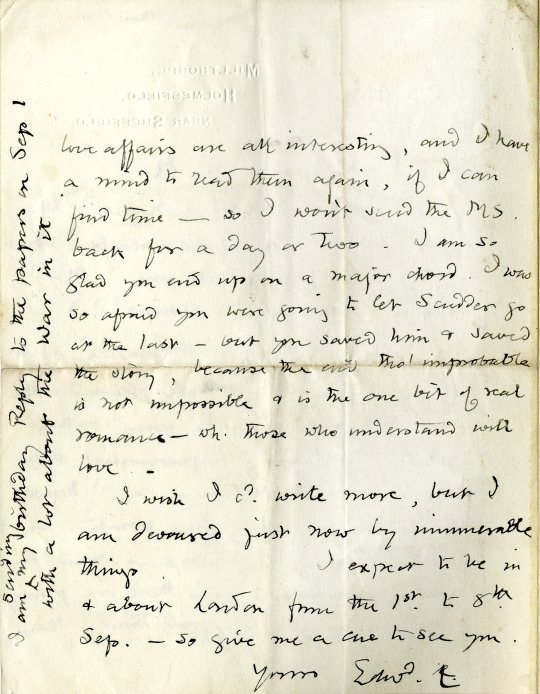 MILLTHORPE,
HOLMESFIELD,
NEAR SHEFFIELD.
love affairs are all interesting, and I have
a mind to read them again, if I can
find time — so I won't send the MS.
back for a day or two. I am so
glad you end up on a major chord. I was
so afraid you were going to let Scudder go
at the last — but you saved him & saved
the story, because the end tho' improbable
is not impossible & is the one bit of real
romance — wh. those who understand will
love.
I wish I cd. write more, but I
am devoured just now by innumerable
things I expect to be in
& about London from the 1st. to 8th.
Sep. — so give me a cue to see you.
Yours Edwd. C
I am sending my birthday Reply to the papers on Sep 1
with a lot about the War in it